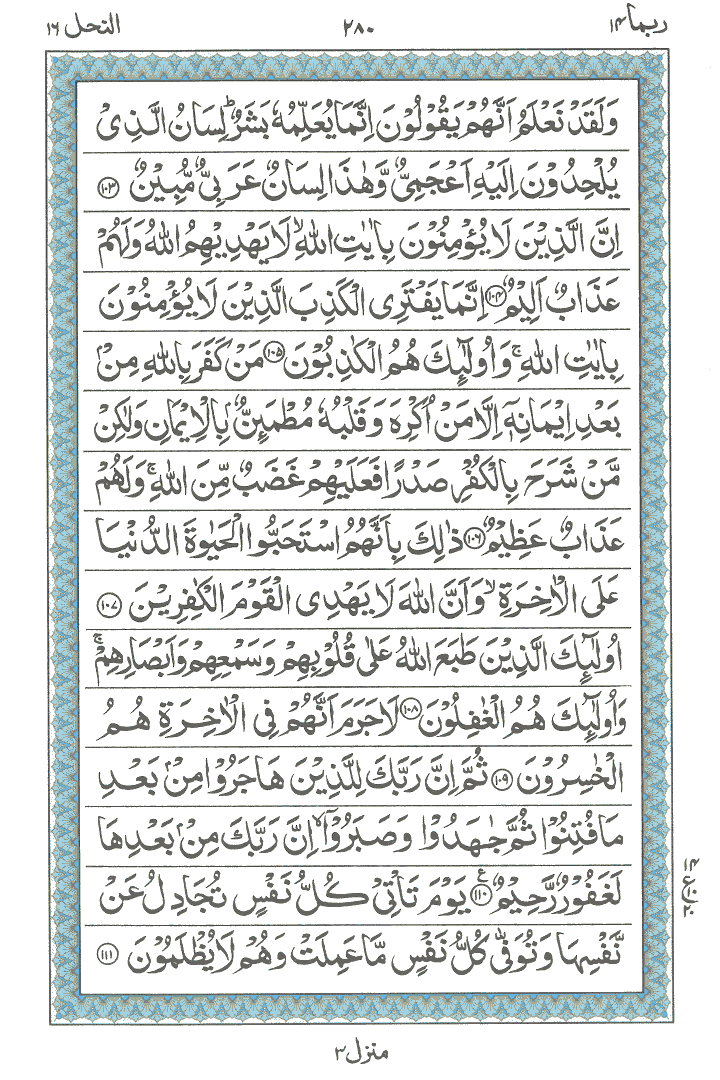 ربما ١٤
٢٨٠
النحل ١٦
وَلَقَدْ نَعْلَمُ اَنَّهُمْ يَقُوْلُوْنَ اِنَّمَا يُعَلِّمُهٗ بَشَرٌ ؕ لِسَانُ الَّذِىْ
يُلْحِدُوْنَ اِلَيْهِ اَعْجَمِىٌّ وَّهٰذَا لِسَانٌ عَرَبِىٌّ مُّبِيْنٌ ﴿۱۰۳﴾
اِنَّ الَّذِيْنَ لَا يُؤْمِنُوْنَ بِاٰيٰتِ اللّٰهِ ۙ لَا يَهْدِيْهِمُ اللّٰهُ وَلَهُمْ
عَذَابٌ اَلِيْمٌ ﴿۱۰۴﴾ اِنَّمَا يَفْتَرِى الْكَذِبَ الَّذِيْنَ لَا يُؤْمِنُوْنَ
بِاٰيٰتِ اللّٰهِ ۚ وَاُولٰٓئِكَ هُمُ الْكٰذِبُوْنَ ﴿۱۰۵﴾ مَنْ كَفَرَ بِاللّٰهِ مِنْۢ
بَعْدِ اِيْمَانِهٖۤ اِلَّا مَنْ اُكْرِهَ وَقَلْبُهٗ مُطْمَئِنٌّۢ بِالْاِيْمَانِ وَلٰكِنْ
مَّنْ شَرَحَ بِالْكُفْرِ صَدْرًا فَعَلَيْهِمْ غَضَبٌ مِّنَ اللّٰهِ ۚ وَلَهُمْ
عَذَابٌ عَظِيْمٌ ﴿۱۰۶﴾ ذٰلِكَ بِاَنَّهُمُ اسْتَحَبُّوا الْحَيٰوةَ الدُّنْيَا
عَلَى الْاٰخِرَةِ ۙ وَاَنَّ اللّٰهَ لَا يَهْدِى الْقَوْمَ الْكٰفِرِيْنَ ﴿۱۰۷﴾
اُولٰٓئِكَ الَّذِيْنَ طَبَعَ اللّٰهُ عَلٰى قُلُوْبِهِمْ وَسَمْعِهِمْ وَاَبْصَارِهِمْ ۚ
وَاُولٰٓئِكَ هُمُ الْغٰفِلُوْنَ ﴿۱۰۸﴾ لَا جَرَمَ اَنَّهُمْ فِى الْاٰخِرَةِ هُمُ
الْخٰسِرُوْنَ ﴿۱۰۹﴾ ثُمَّ اِنَّ رَبَّكَ لِلَّذِيْنَ هَاجَرُوْا مِنْۢ بَعْدِ
مَا فُتِنُوْا ثُمَّ جٰهَدُوْا وَصَبَرُوْۤا ۙ اِنَّ رَبَّكَ مِنْۢ بَعْدِهَا
لَغَفُوْرٌ رَّحِيْمٌ ﴿۱۱۰﴾ ع يَوْمَ تَاْتِىْ كُلُّ نَفْسٍ تُجَادِلُ عَنْ
نَّفْسِهَا وَتُوَفّٰى كُلُّ نَفْسٍ مَّا عَمِلَتْ وَهُمْ لَا يُظْلَمُوْنَ ﴿۱۱۱﴾
١٤
ع
٢٠
منزل ٣